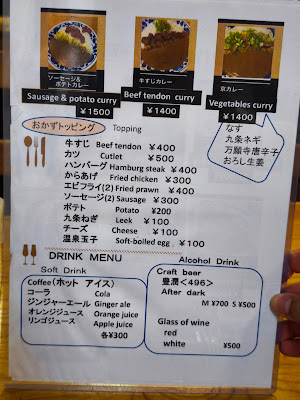 ソーセージ&
ポテトカレー
Sausage & potato curry
￥1500
牛すじカレー
Beef tendon curry
￥1400
京カレー
Vegetables curry
￥1400
なす
九条ネギ
万願寺唐辛子
おろし生姜
おかずトッピング Topping
牛すじ Beef tendon ￥400
カツ Cutlet ￥500
ハンバーグ Hamburg steak ￥400
からあげ Fried chicken ￥300
エビフライ(2) Fried prawn ￥400
ソーセージ(2) Sausage ￥300
ポテト Potato ¥200
九条ねぎ Leek ￥100
チーズ Cheese ￥100
温泉玉子 Soft-boiled egg ￥100
DRINK MENU
Soft Drink
Coffee(ホット アイス)
コーラ Cola
ジンジャーエール Ginger ale
オレンジジュース Orange juice
リンゴジュース Apple juice
各¥300
Alcohol Drink
Craft beer
豊潤<496>
After dark
M ¥700 S ¥500
Glass of wine
red
white ¥500